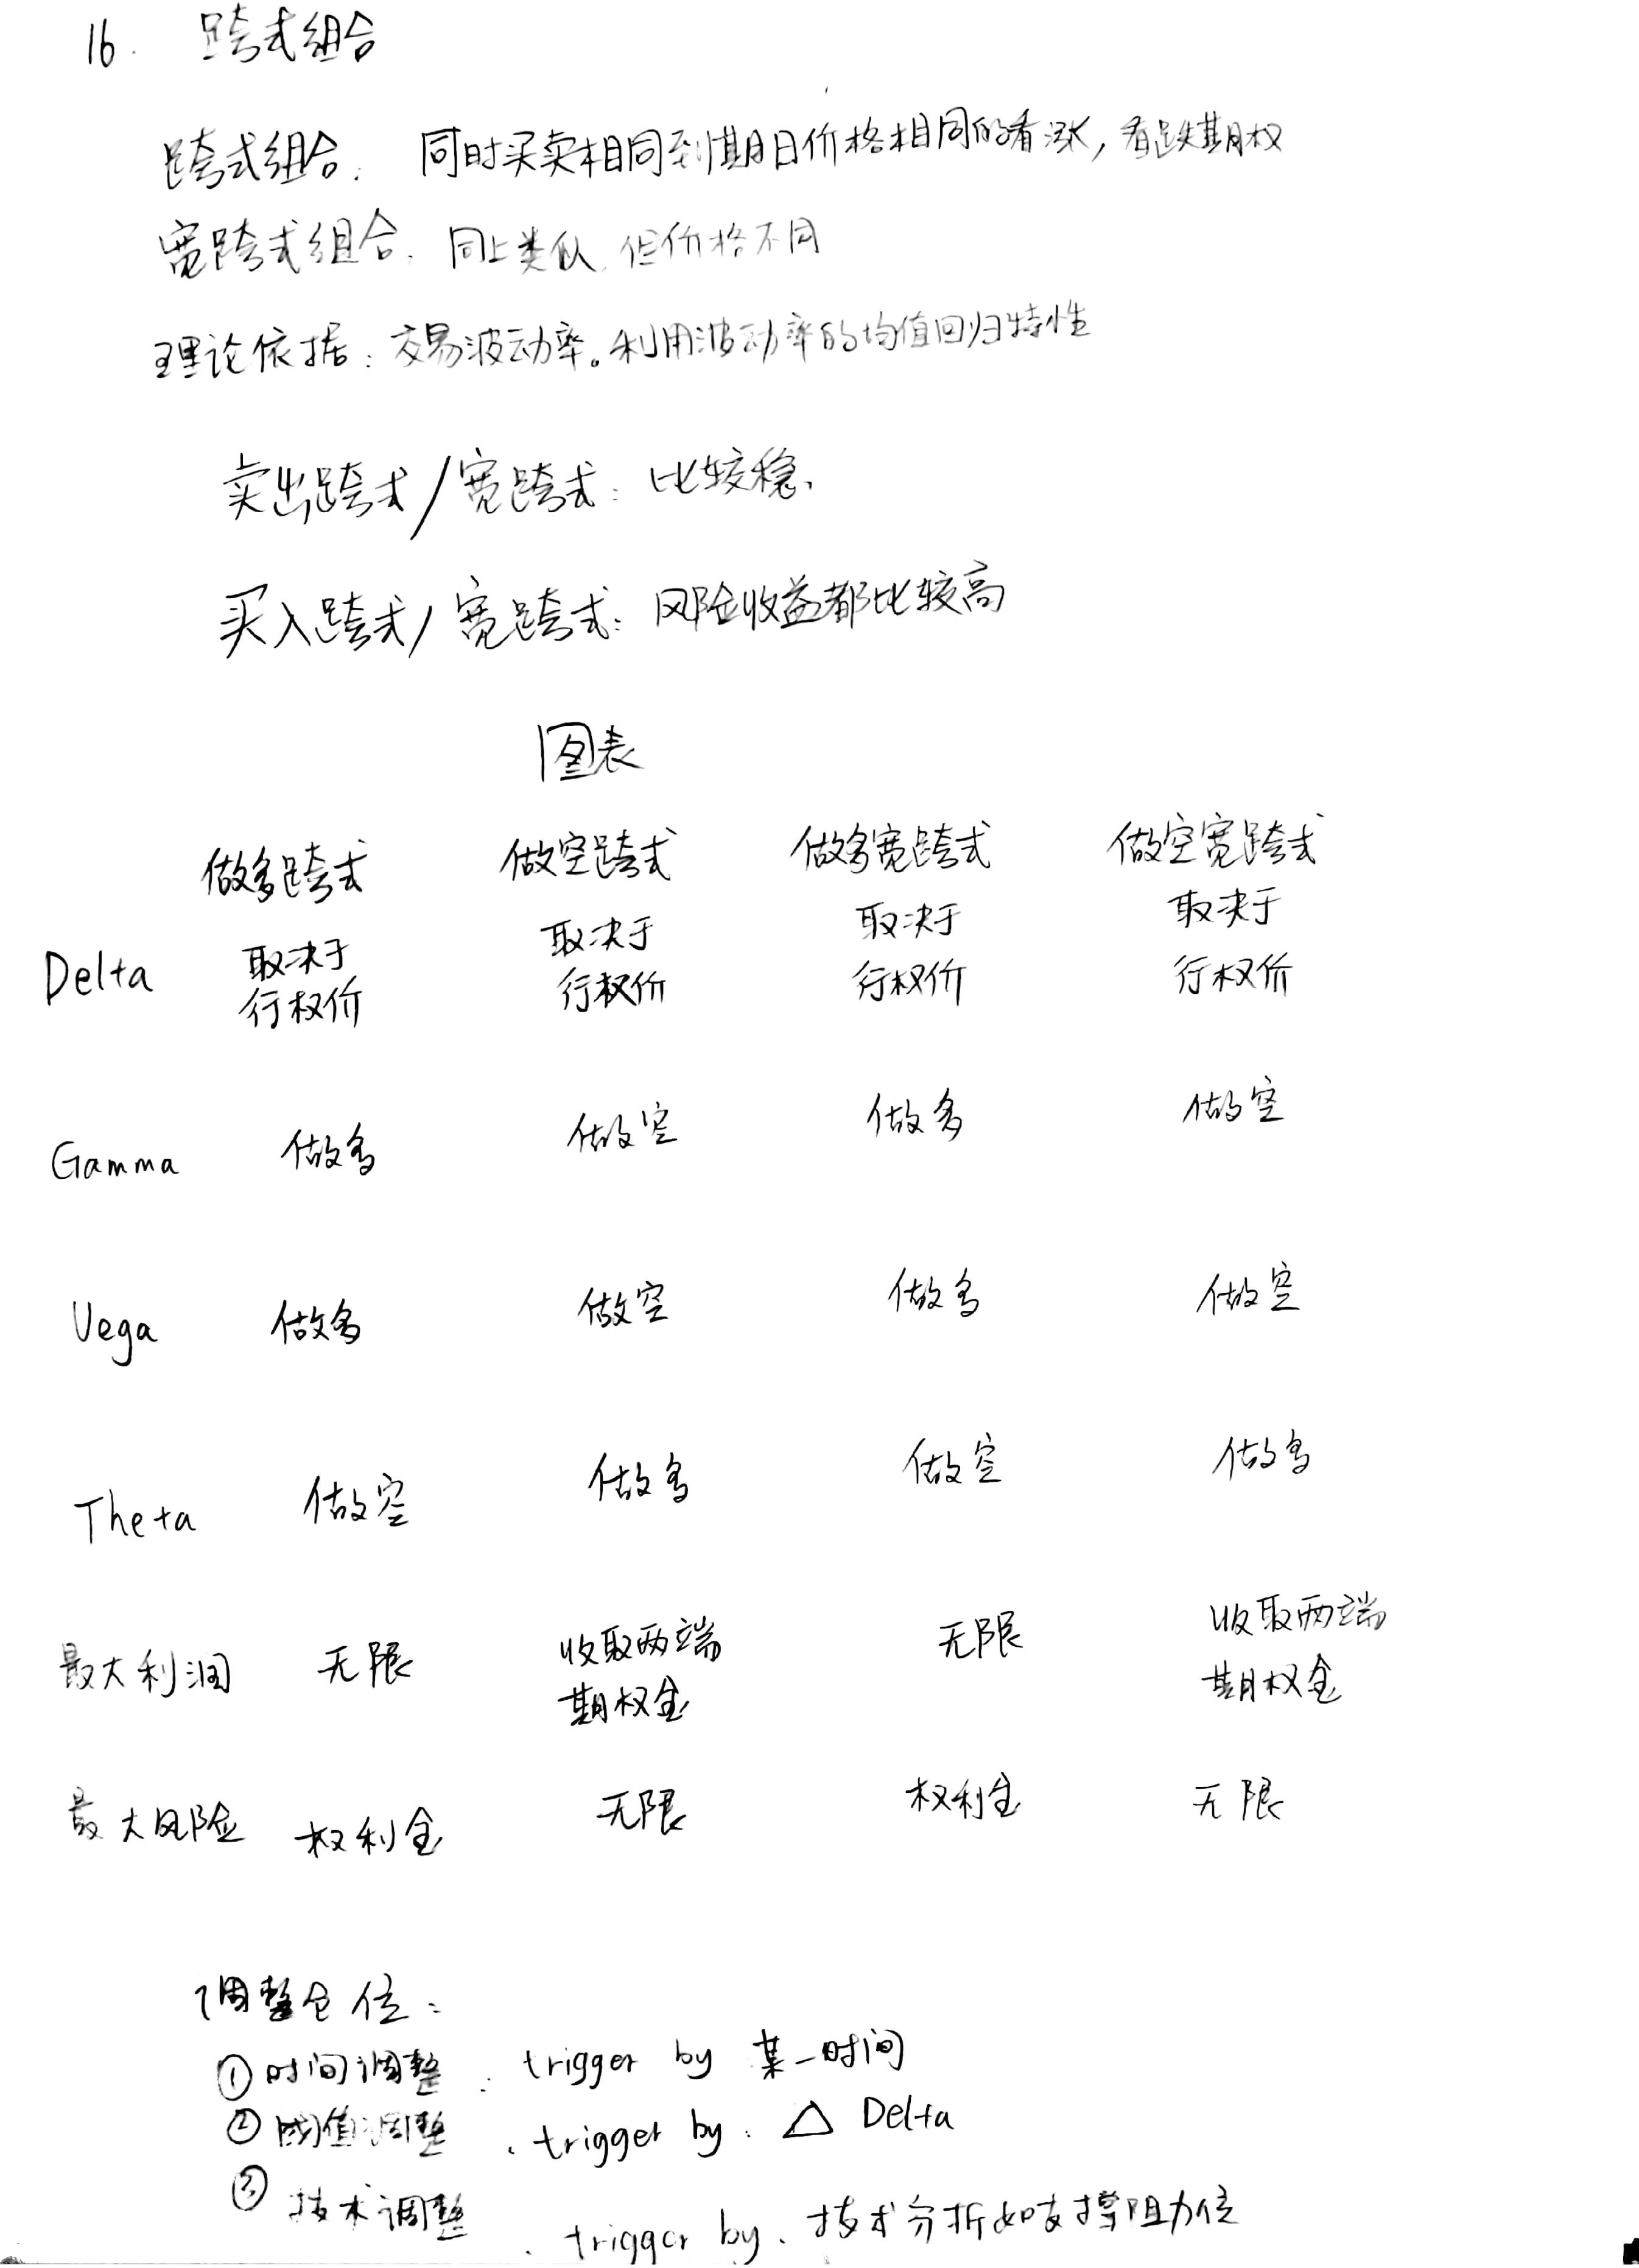 16. 跨式组合
跨式组合: 同时买卖相同到期日价格相同的看涨, 看跌期权
宽跨式组合. 同上类似, 但价格不同
理论依据: 交易波动率。利用波动率的均值回归特性
卖出跨式/宽跨式: 比较稳、
买入跨式/宽跨式: 风险收益都比较高
图表
做多跨式 做空跨式 做多宽跨式 做空宽跨式
Delta 取决于行权价 取决于行权价 取决于行权价 取决于行权价
Gamma 做多 做空 做多 做空
Vega 做多 做空 做多 做空
Theta 做空 做多 做空 做多
最大利润 无限 收取两端期权金 无限 收取两端期权金
最大风险 权利金 无限 权利金 无限
调整仓位:
① 时间调整. trigger by 某一时间
② 阈值调整. trigger by. △ Delta
③ 技术调整. trigger by. 技术分析如支撑阻力位